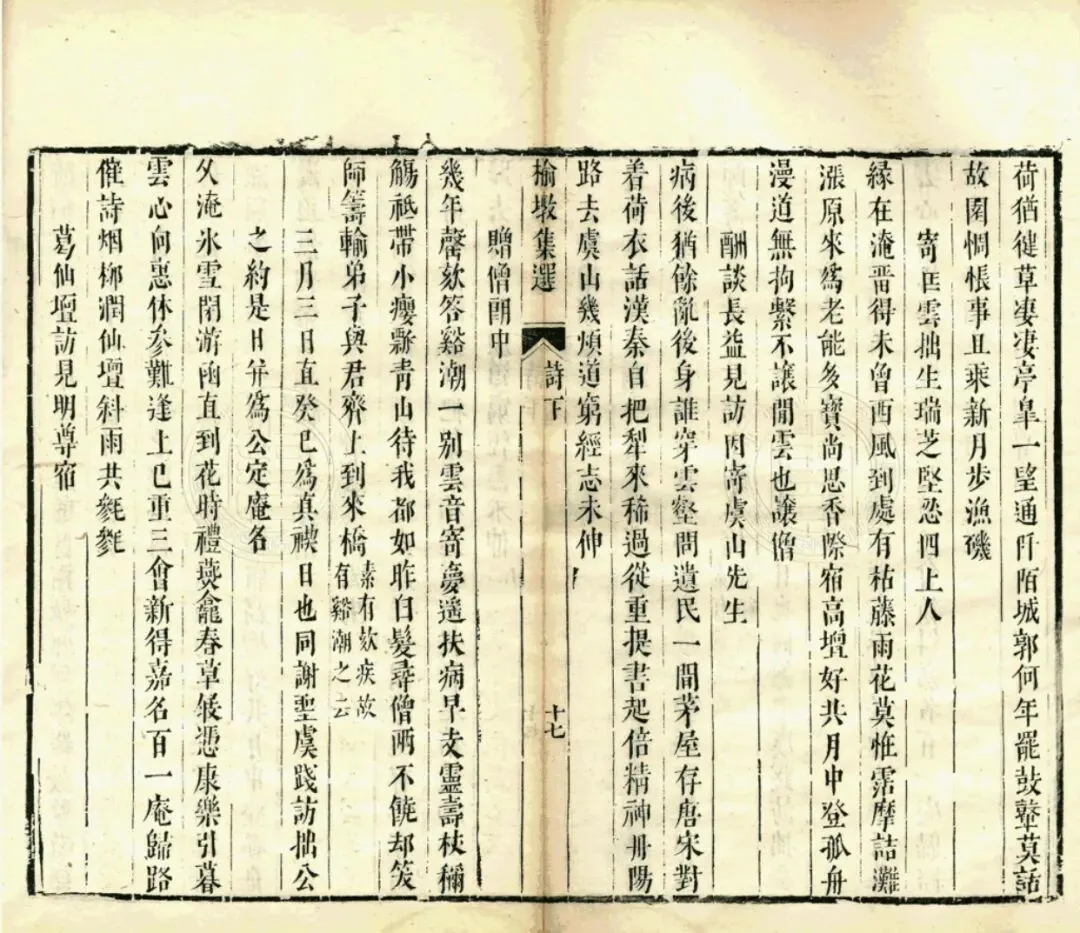 荷猶徤草凄凄亭臯一望通阡陌城郭何年罷鼓鼙莫話
故園惆悵事且乘新月步漁磯
寄匡雲拙生瑞芝堅忍四上人
緣在淹晋得未曾西風到處有枯藤雨花莫惟霑摩詰灘
漲原來爲老能多寶尚思香際宿高壇好共月中登孤舟
漫道無拘繫不讓閒雲也讓僧
酬談長益見訪因寄虞山先生
病後猶餘亂後身誰穿雲壑問遺民一間茅屋存唐宋對
着荷衣話漢秦自把犁來稀過從重提書起倍精神丹陽
路去虞山幾煩道窮經志未伸
榆墩集選 詩下 十七
贈僧䎱中
幾年謦欬答谿潮一別雲音寄夢遥扶病早支靈壽杖稱
觴祗帶小癭瓢靑山待我都如昨白髮尋僧兩不饒却笑
師籌輸弟子與君齊上到來橋素有欬疾故有谿潮之云
三月三日直癸巳爲真禊日也同謝聖虞踐訪拙公
之約是日幷爲公定庵名
久淹氷雪閉游函直到花時禮燕龕春草緩憑康樂引暮
雲心向惠休參難逢上巳重三會新得嘉名百一庵歸路
催詩烟栁潤仙壇斜雨共毿毿
葛仙壇訪見明尊宿